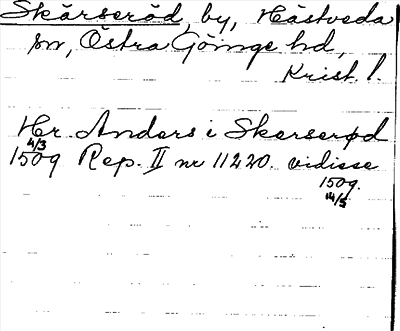 Skärseröd, by, Hästveda
sn, Östra Göinge hd,
Krist. l.
Hr Anders i Skerserød
4/3
1509 Rep. II nr 11220. vidisse
1509.
14/5